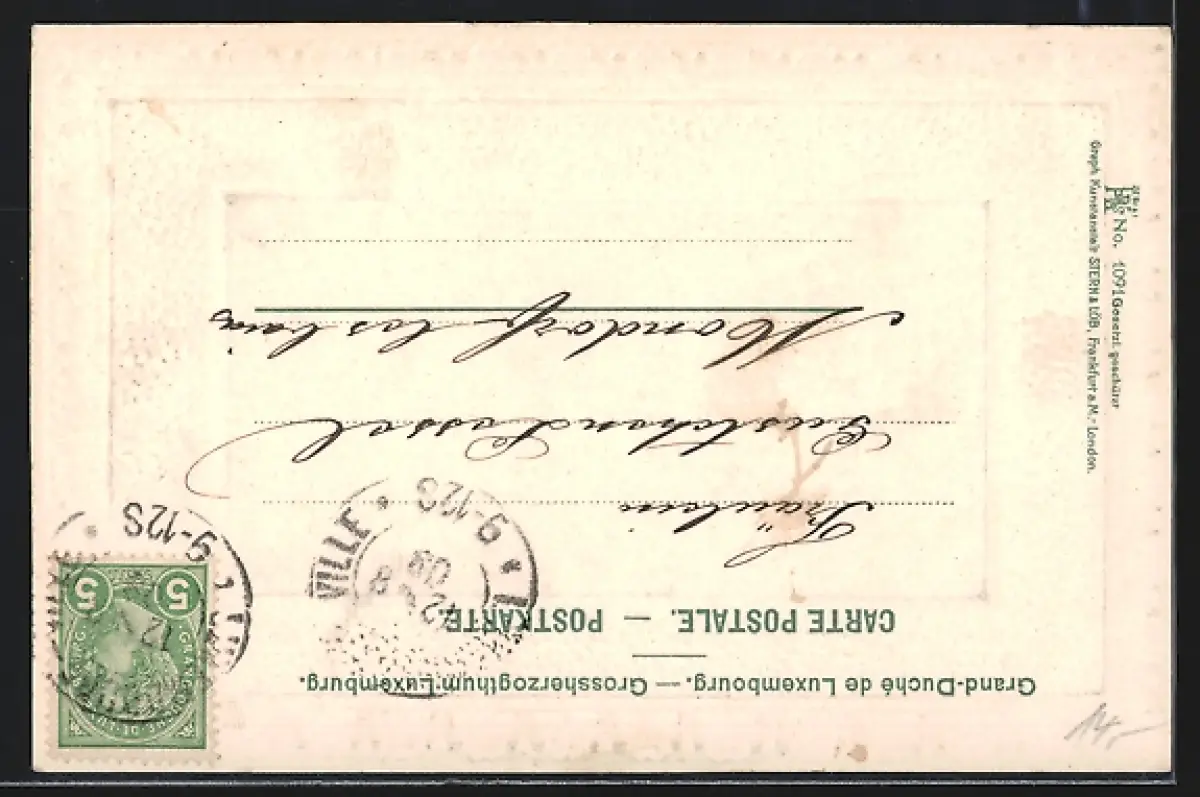 Grand-Duché de Luxembourg. — Grossherzogthum Luxemburg.
CARTE POSTALE. — POSTKARTE.
Fräulein
Mondorf les bains
VILLE
9-12S
09
9-12S
5 5
GRAND
No. 1091 Gesetzl. geschützt
Graph. Kunstanstalt STERN & LÖB, Frankfurt a. M. - London.